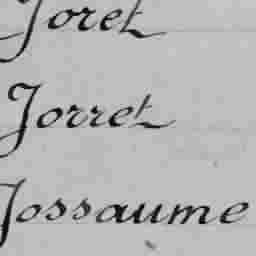 Joret
Jorret
Jossaume